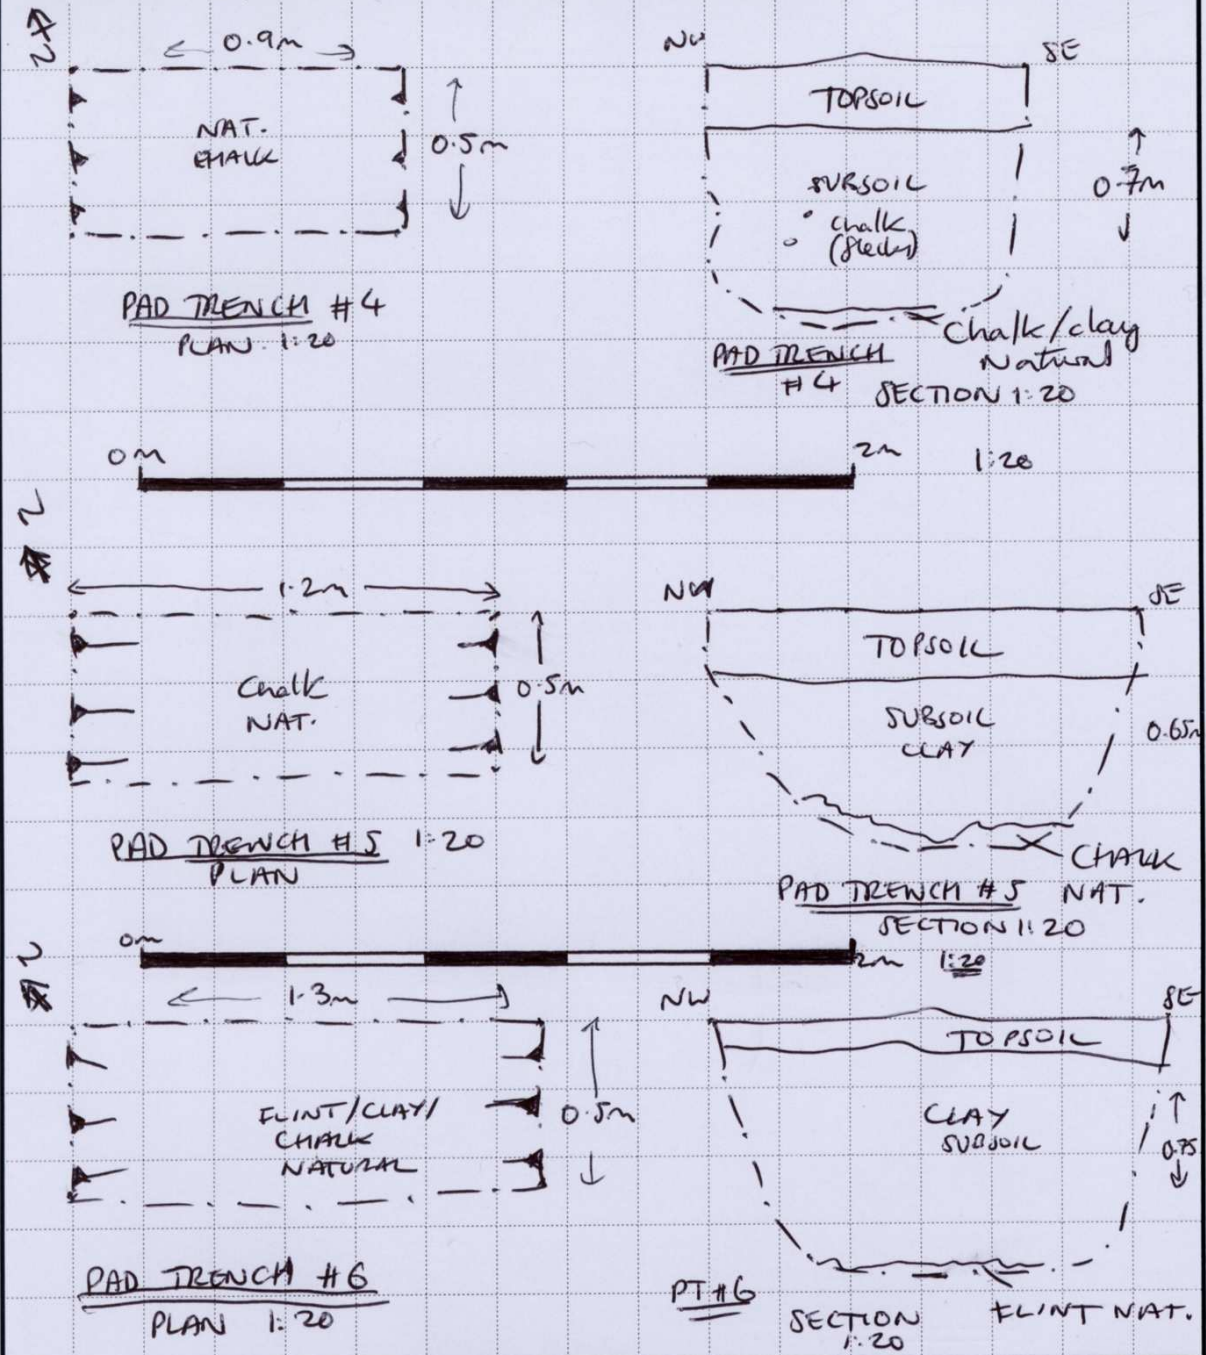 N
0.9m
NAT.
CHALK
0.5m
PAD TRENCH #4
PLAN. 1:20
NW
SE
TOPSOIL
SUBSOIL
chalk
(flecks)
0.7m
Chalk/clay
Natural
PAD TRENCH
#4
SECTION 1:20
0m
2m
1:20
N
1.2m
Chalk
NAT.
0.5m
PAD TRENCH #5 1:20
PLAN
NW
SE
TOPSOIL
SUBSOIL
CLAY
0.65m
CHALK
NAT.
PAD TRENCH #5
SECTION 1:20
0m
2m
1:20
N
1.3m
FLINT/CLAY/
CHALK
NATURAL
0.5m
PAD TRENCH #6
PLAN 1:20
NW
SE
TOPSOIL
CLAY
SUBSOIL
0.75
PT#6
SECTION
1:20
FLINT NAT.